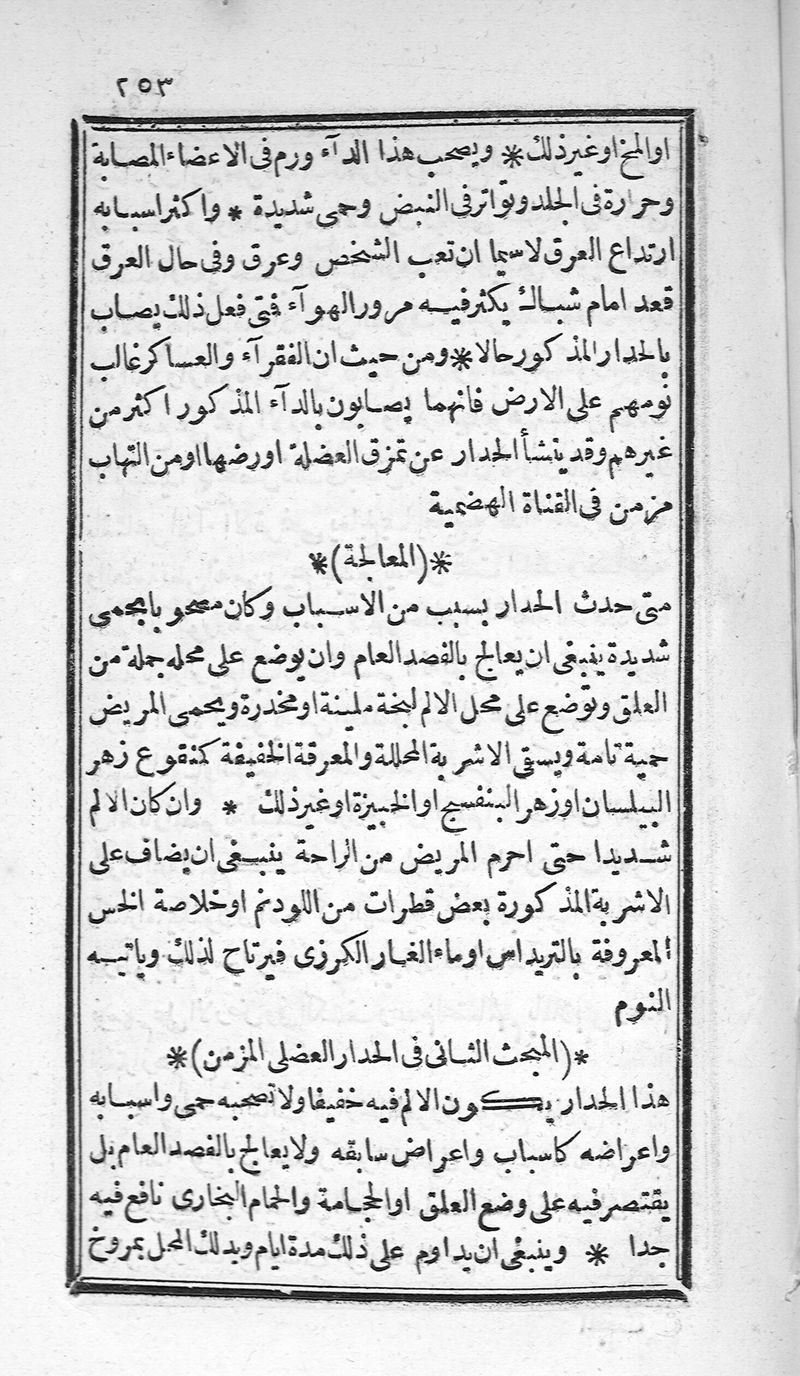 ٢٥٣
او المخ او غير ذلك * ويصحب هذا الدآء ورم فى الاعضاء المصابة
وحرارة فى الجلد وتواتر فى النبض وحمى شديدة * واكثر اسبابه
ارتداع العرق لاسيما ان تعب الشخص وعرق وفى حال العرق
قعد امام شباك يكثر فيه مرور الهوآء فتى فعل ذلك يصاب
بالحدار المذكور حالا * ومن حيث ان الفقرآء والعساكر غالب
نومهم على الارض فانهما يصابون بالدآء المذكور اكثر من
غيرهم وقد ينشأ الحدار عن تمزق العضلة او رضها او من التهاب
مزمن فى القناة الهضمية
*(المعالجة)*
متى حدث الحدار بسبب من الاسباب وكان مصحوبا بحمى
شديدة ينبغى ان يعالج بالفصد العام وان يوضع على محله جملة من
العلق وتوضع على محل الالم لبخة ملينة او مخدرة ويحمى المريض
حمية تامة ويسقى الاشربة المحللة والمعرقة الخفيفة كمنقوع زهر
البيلسان او زهر البنفسج او الخبيزة او غير ذلك * وان كان الالم
شديدا حتى احرم المريض من الراحة ينبغى ان يضاف على
الاشربة المذكورة بعض قطرات من اللودنم او خلاصة الخس
المعروفة بالتريداس او ماء الغار الكرزى فيرتاح لذلك وياتيه
النوم
*(المبحث الثانى فى الحدار العضلى المزمن)*
هذا الحدار يكون الالم فيه خفيفا ولا تصحبه حمى واسبابه
واعراضه كاسباب واعراض سابقه ولا يعالج بالفصد العام بل
يقتصر فيه على وضع العلق او الحجامة والحمام البخارى نافع فيه
جدا * وينبغى ان يداوم على ذلك مدة ايام ويدلك المحل بمروخ